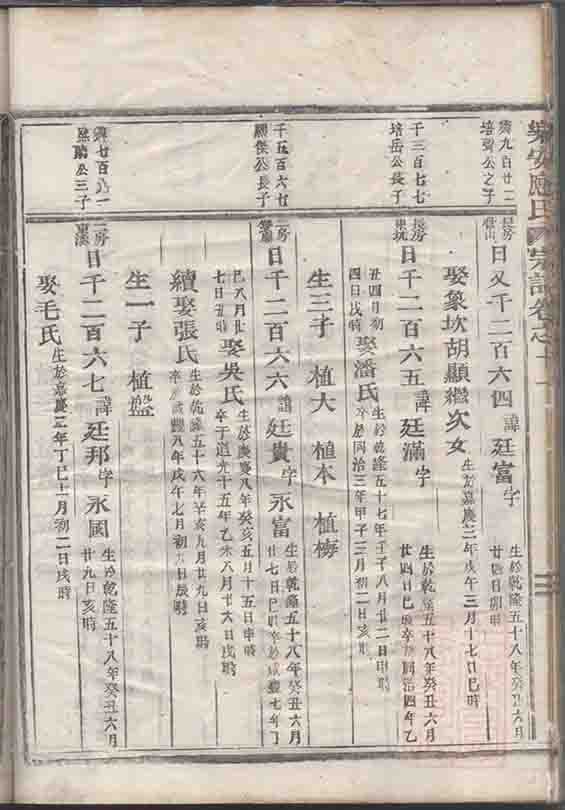 樂安應氏宗譜卷之十
培聲公之子
日又千二百六四 諱 廷富 字
生於乾隆五十八年癸丑六月
廿四日卯時
娶象坎胡顯繼次女
生於嘉慶三年戊午三月十七日巳時
千三百七七
培岳公長子
長房
日千二百六五 諱 廷滿 字
生於乾隆五十八年癸丑六月
廿四日巳時卒於同治四年乙
丑四月初
四日戌時
娶潘氏
生於乾隆五十七年壬子八月廿二日申時
卒於同治三年甲子三月初二日亥時
生三子 植大 植本 植梅
千五百六七
公長子
房
日千二百六六 諱 廷貴 字 永富
生於乾隆五十八年癸丑六月
廿七日巳時卒於咸豐七年丁
巳八月廿
七日丑時
娶吳氏
生於嘉慶八年癸亥五月十五日申時
卒于道光十五年乙未六月廿六日戌時
續娶張氏
生於乾隆五十六年辛亥九月廿九日亥時
卒於咸豐八年戊午七月初日辰時
生一子 植盤
公三子
二房
日千二百六七 諱 廷邦 字 永國
生於乾隆五十八年癸丑六月
廿九日亥時
娶毛氏
生於嘉慶二年丁巳十月初二日戌時